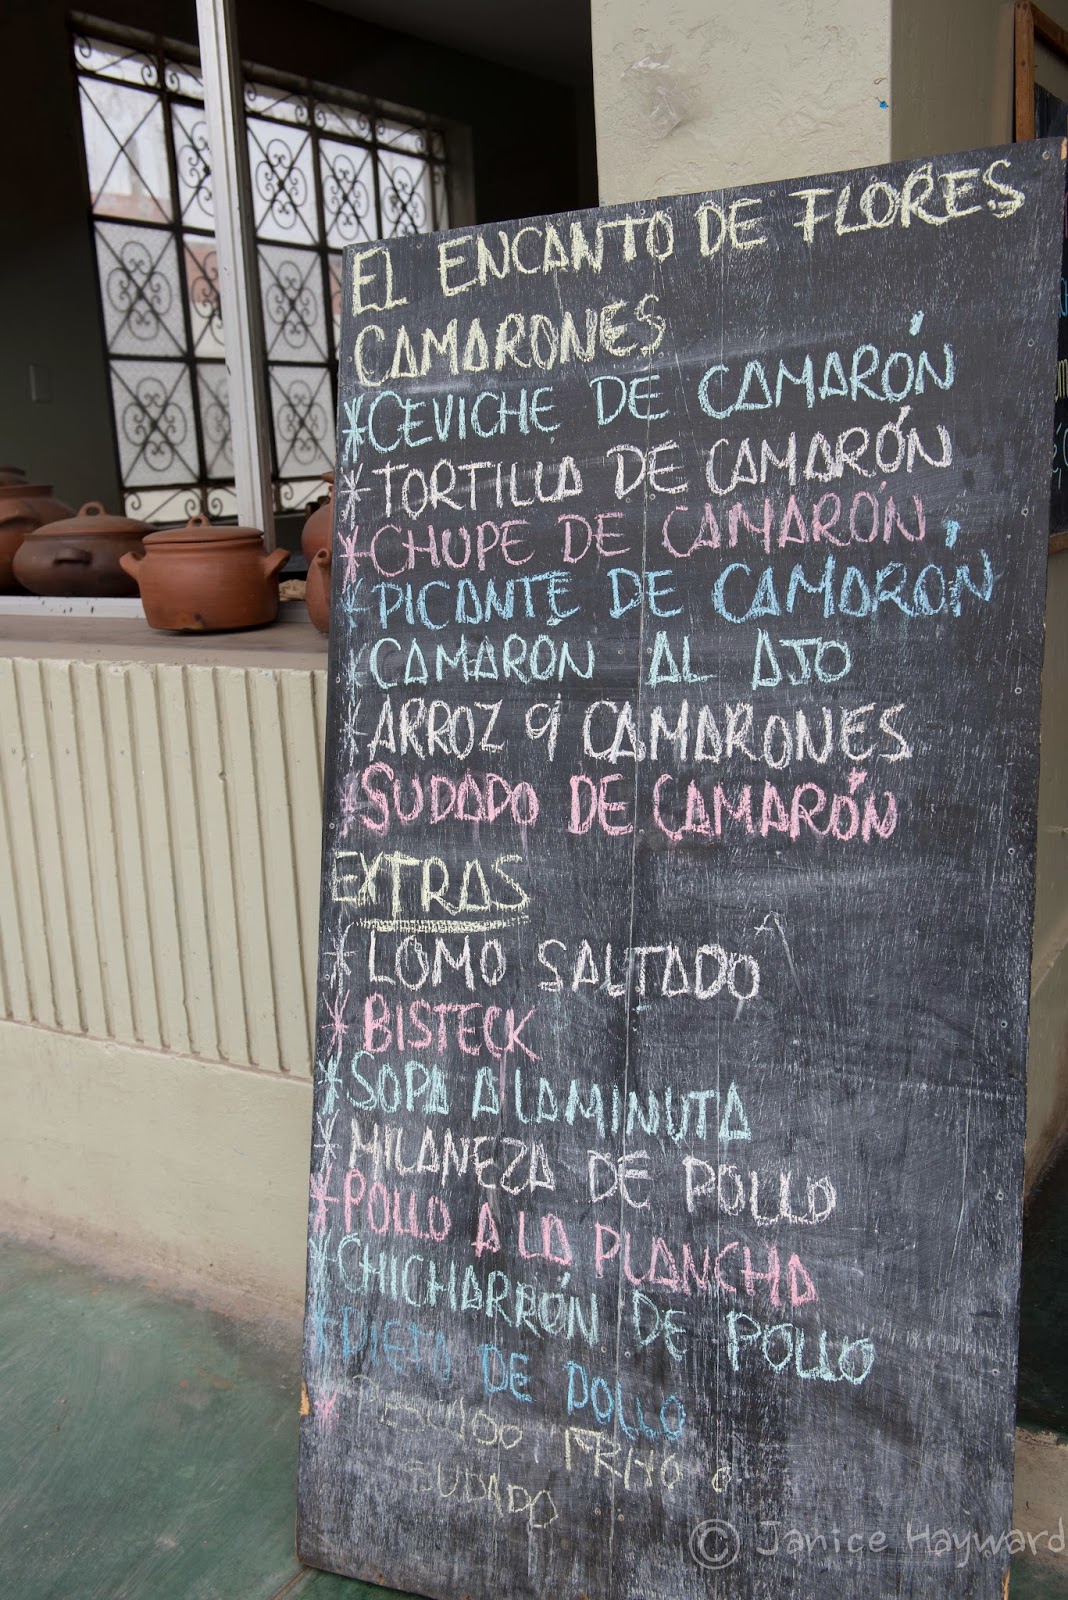 EL ENCANTO DE FLORES
CAMARONES
*CEVICHE DE CAMARÓN
*TORTILLA DE CAMARÓN
*CHUPE DE CAMARÓN
*PICANTE DE CAMARÓN
*CAMARÓN AL AJO
*ARROZ C/ CAMARONES
*SUDADO DE CAMARÓN
EXTRAS
*LOMO SALTADO
*BISTECK
*SOPA A LA MINUTA
*MILANEZA DE POLLO
*POLLO A LA PLANCHA
*CHICHARRÓN DE POLLO
*DIETA DE POLLO
* FRITO o
SUDADO
© Janice Hayward